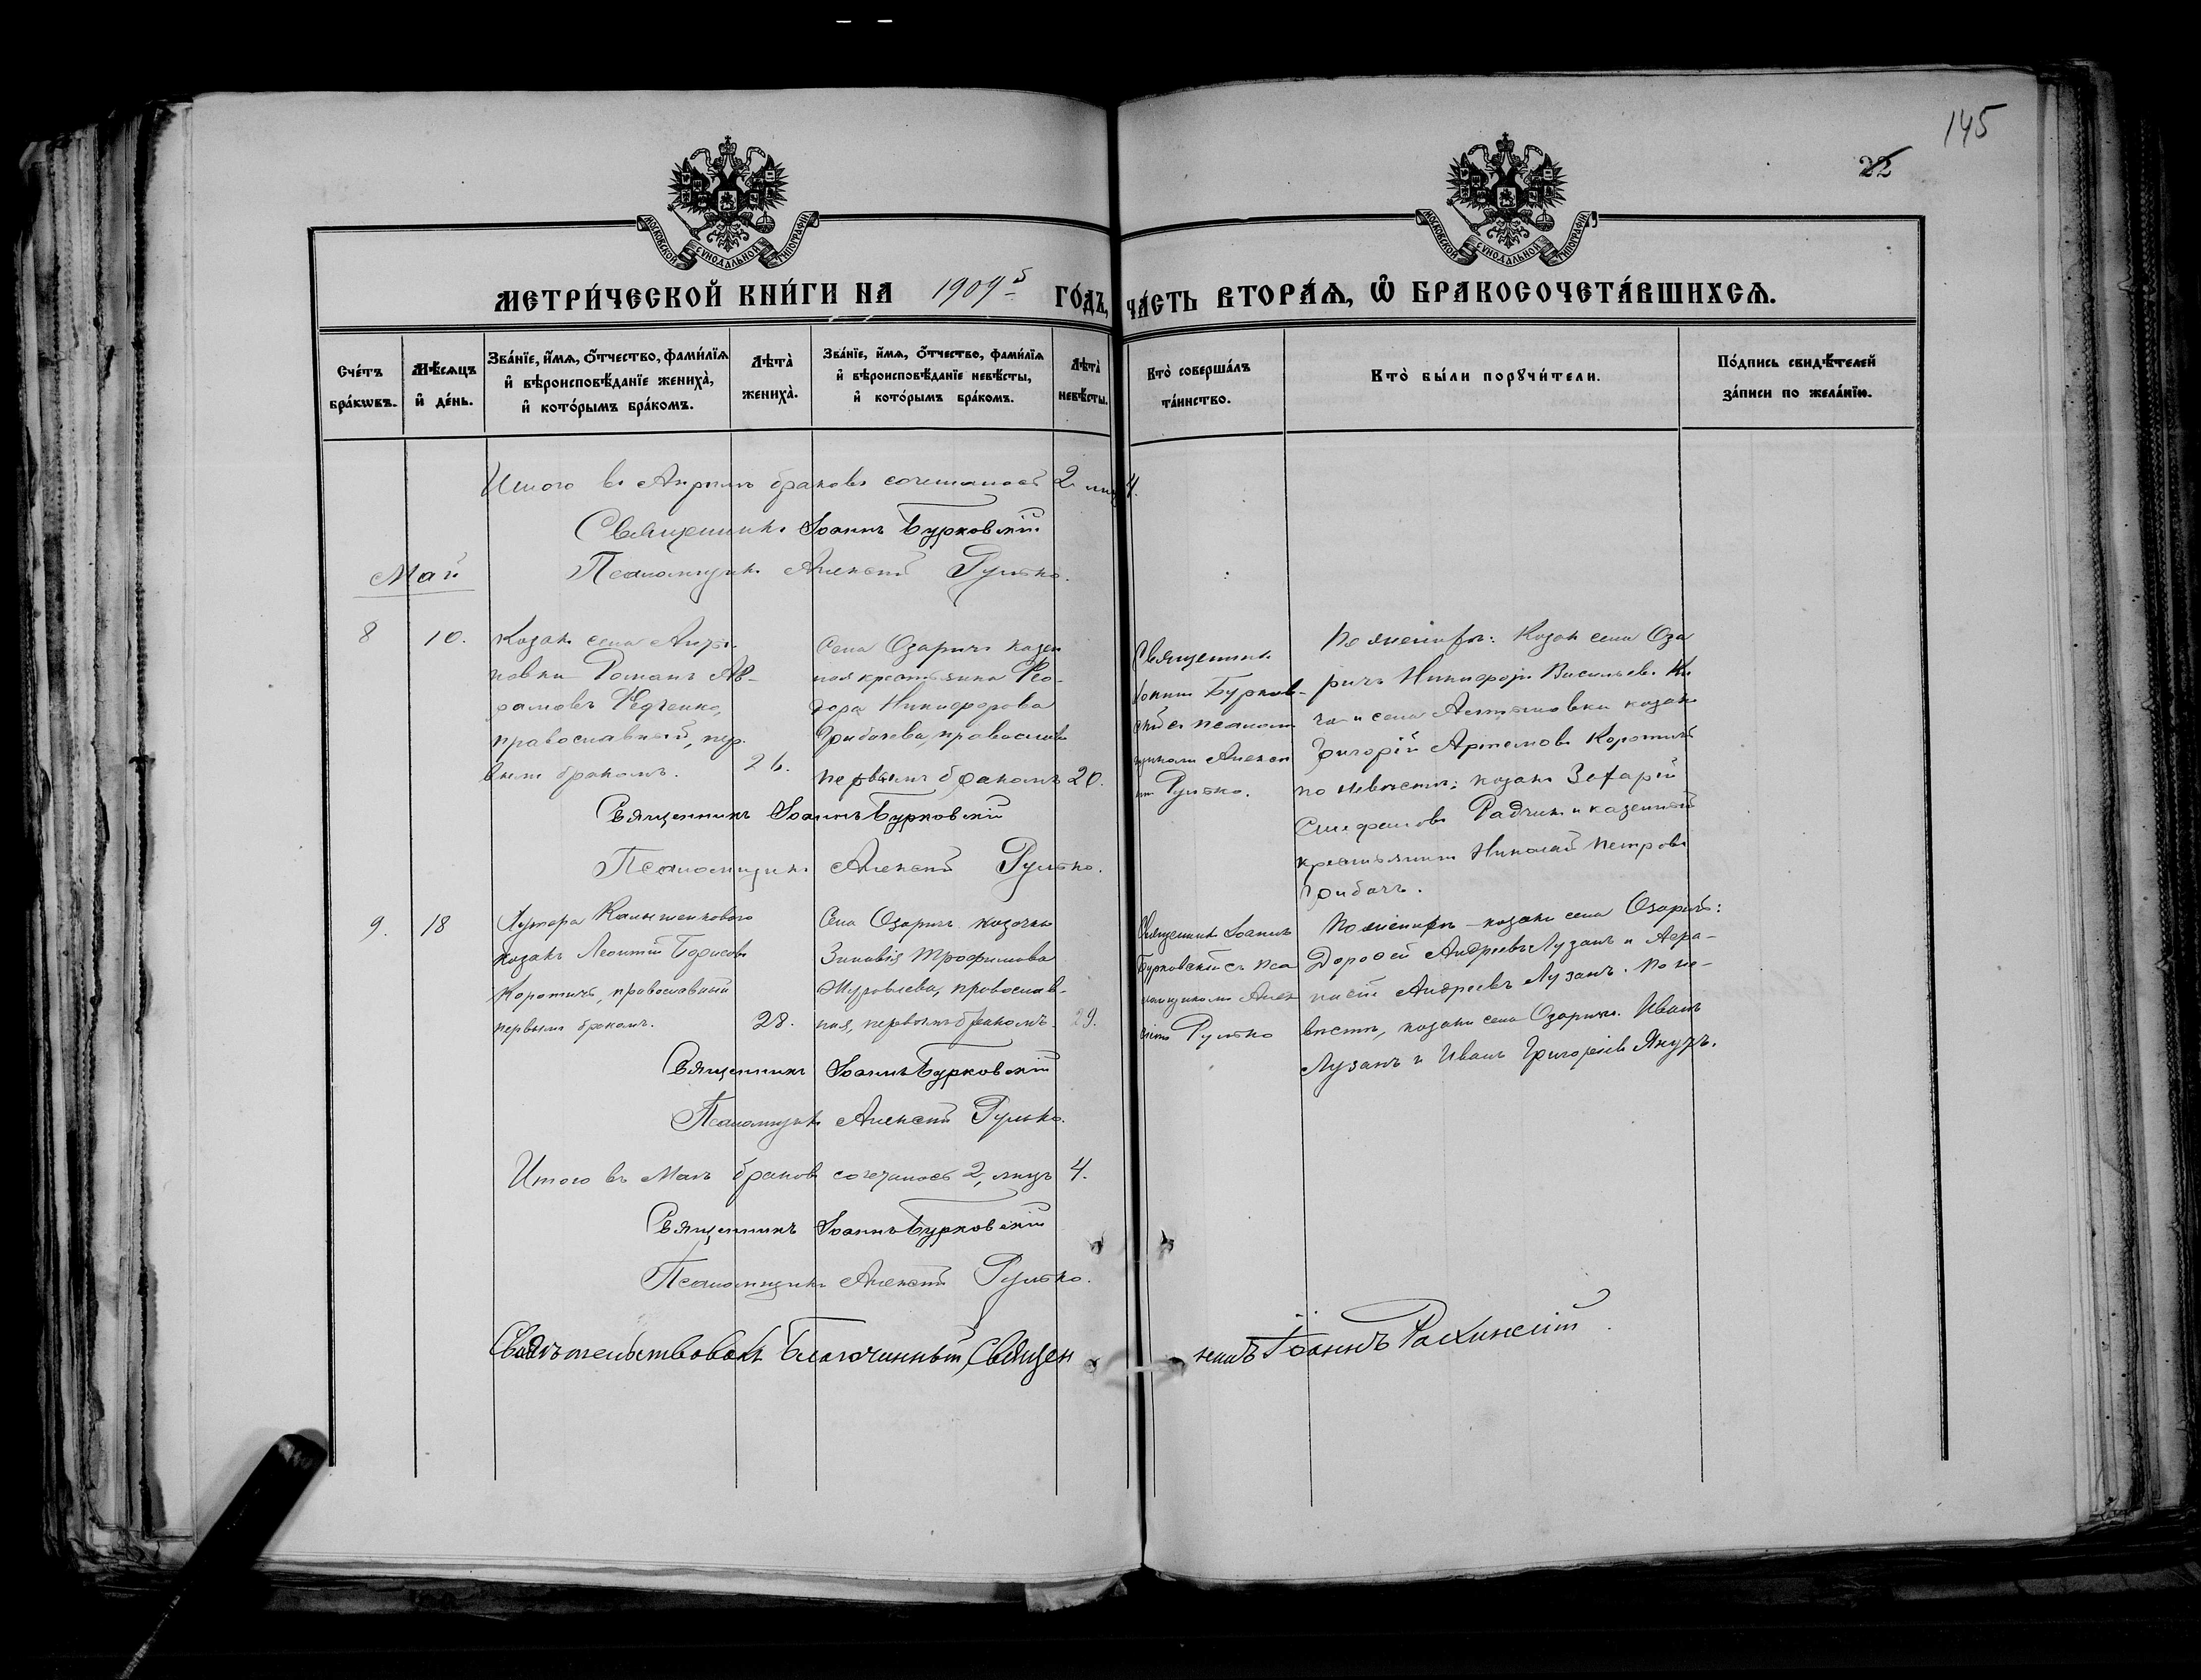 145
22
МОСКОВСКОЙ СѴНОДАЛЬНОЙ ТИПОГРАФІИ
МОСКОВСКОЙ СѴНОДАЛЬНОЙ ТИПОГРАФІИ
МЕТРИ́ЧЕСКОЙ КНИ́ГИ НА 1909 ГО́ДЪ, ЧА́СТЬ ВТОРА́Ѧ, Ѽ БРАКОСОЧЕТА́ВШИХСѦ.
Сче́тъ
бра́кѡвъ.
Мѣ́сѧцъ
и҆ де́нь.
Зва́нїе, и҆́мѧ, ѻ҆́тчество, фами́лїѧ
и҆ вѣроисповѣ́данїе жениха̀,
и҆ кото́рымъ бра́комъ.
Лѣта̀
жениха̀.
Зва́нїе, и҆́мѧ, ѻ҆́тчество, фами́лїѧ
и҆ вѣроисповѣ́данїе невѣ́сты,
и҆ кото́рымъ бра́комъ.
Лѣта̀
невѣ́сты.
Кто̀ соверша́лъ
та́инство.
Кто̀ бы́ли порꙋчи́тели.
По́дпись свидѣ́телей
за́писи по жела́нїю.
Итого въ Апрѣлѣ браковъ сочеталось 2 лиц 4.
Священникъ Іоаннъ Бурковскій
Май
Псаломщикъ Алексій Рулько.
8
10.
Козакъ села
Романъ Ав-
рамовъ Редченко,
православный, пер-
вымъ бракомъ.
26.
Села Озаричъ казен
ная крестьянка Өео-
дора Никифорова
Грибачева, православ
первымъ бракомъ
20.
Священникъ
Іоаннъ Бурков-
скій съ псалом
щикомъ Алексі
емъ Рулько.
По женихѣ: Козак села Оза
ричъ Никифоръ Васильевъ
и села козакъ
Григорій Артемовъ Коротичъ
по невѣстѣ: козакъ Захарій
Стефановъ Радчик и казенный
крестьянинъ Николай Петровъ
Грибачъ.
Священникъ Іоаннъ Бурковскій
Псаломщикъ Алексій Рулько.
9.
18
Хутора
козакъ Леонтій Борисовъ
Коротичъ, православный
первымъ бракомъ.
28.
Села Озаричъ козачка
Зиновія Трофимова
Журавлева, православ-
ная, первымъ бракомъ.
29.
Священникъ Іоаннъ
Бурковскій съ пса
ломщикомъ Алек
сіемъ Рулько
По женихѣ — козаки села Озаричъ:
Дороѳей Андреевъ Лузанъ и Аѳа-
насій Андреевъ Лузанъ. По не-
вѣстѣ, козаки села Озаричъ. Иванъ
Лузанъ и Иванъ Григоріевъ
Священникъ Іоаннъ Бурковскій
Псаломщикъ Алексій Рулько.
Итого въ Маѣ браковъ сочеталось 2, лицъ 4.
Священникъ Іоаннъ Бурковскій
Псаломщикъ Алексій Рулько.
Свидѣтельствовалъ Благочинный, Священникъ Іоаннъ